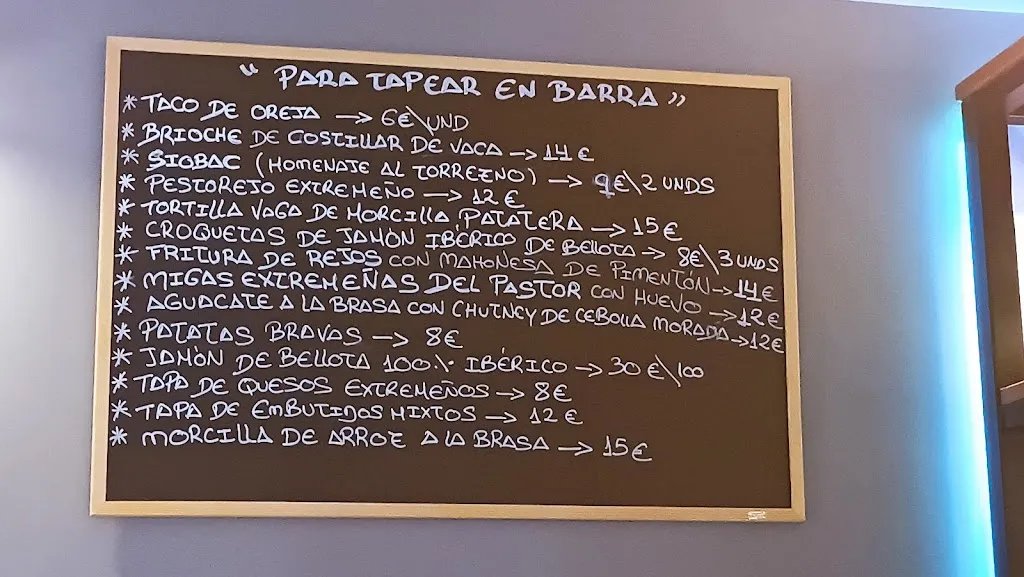 “ PARA TAPEAR EN BARRA ”
* TACO DE OREJA → 6€\UND
* BRIOCHE DE COSTILLAR DE VACA → 14 €
* SIOBAC (HOMENAJE AL TORREZNO) → 9€\2 UNDS
* PESTOREJO EXTREMEÑO → 12 €
* TORTILLA VAGA DE MORCILLA PATATERA → 15€
* CROQUETAS DE JAMÓN IBÉRICO DE BELLOTA → 8€\3 UNDS
* FRITURA DE REJOS CON MAHONESA DE PIMENTÓN → 14€
* MIGAS EXTREMEÑAS DEL PASTOR CON HUEVO → 12€
* AGUACATE A LA BRASA CON CHUTNEY DE CEBOLLA MORADA → 12€
* PATATAS BRAVAS → 8€
* JAMÓN DE BELLOTA 100% IBÉRICO → 30 €\100
* TAPA DE QUESOS EXTREMEÑOS → 8€
* TAPA DE EMBUTIDOS MIXTOS → 12 €
* MORCILLA DE ARROZ A LA BRASA → 15€